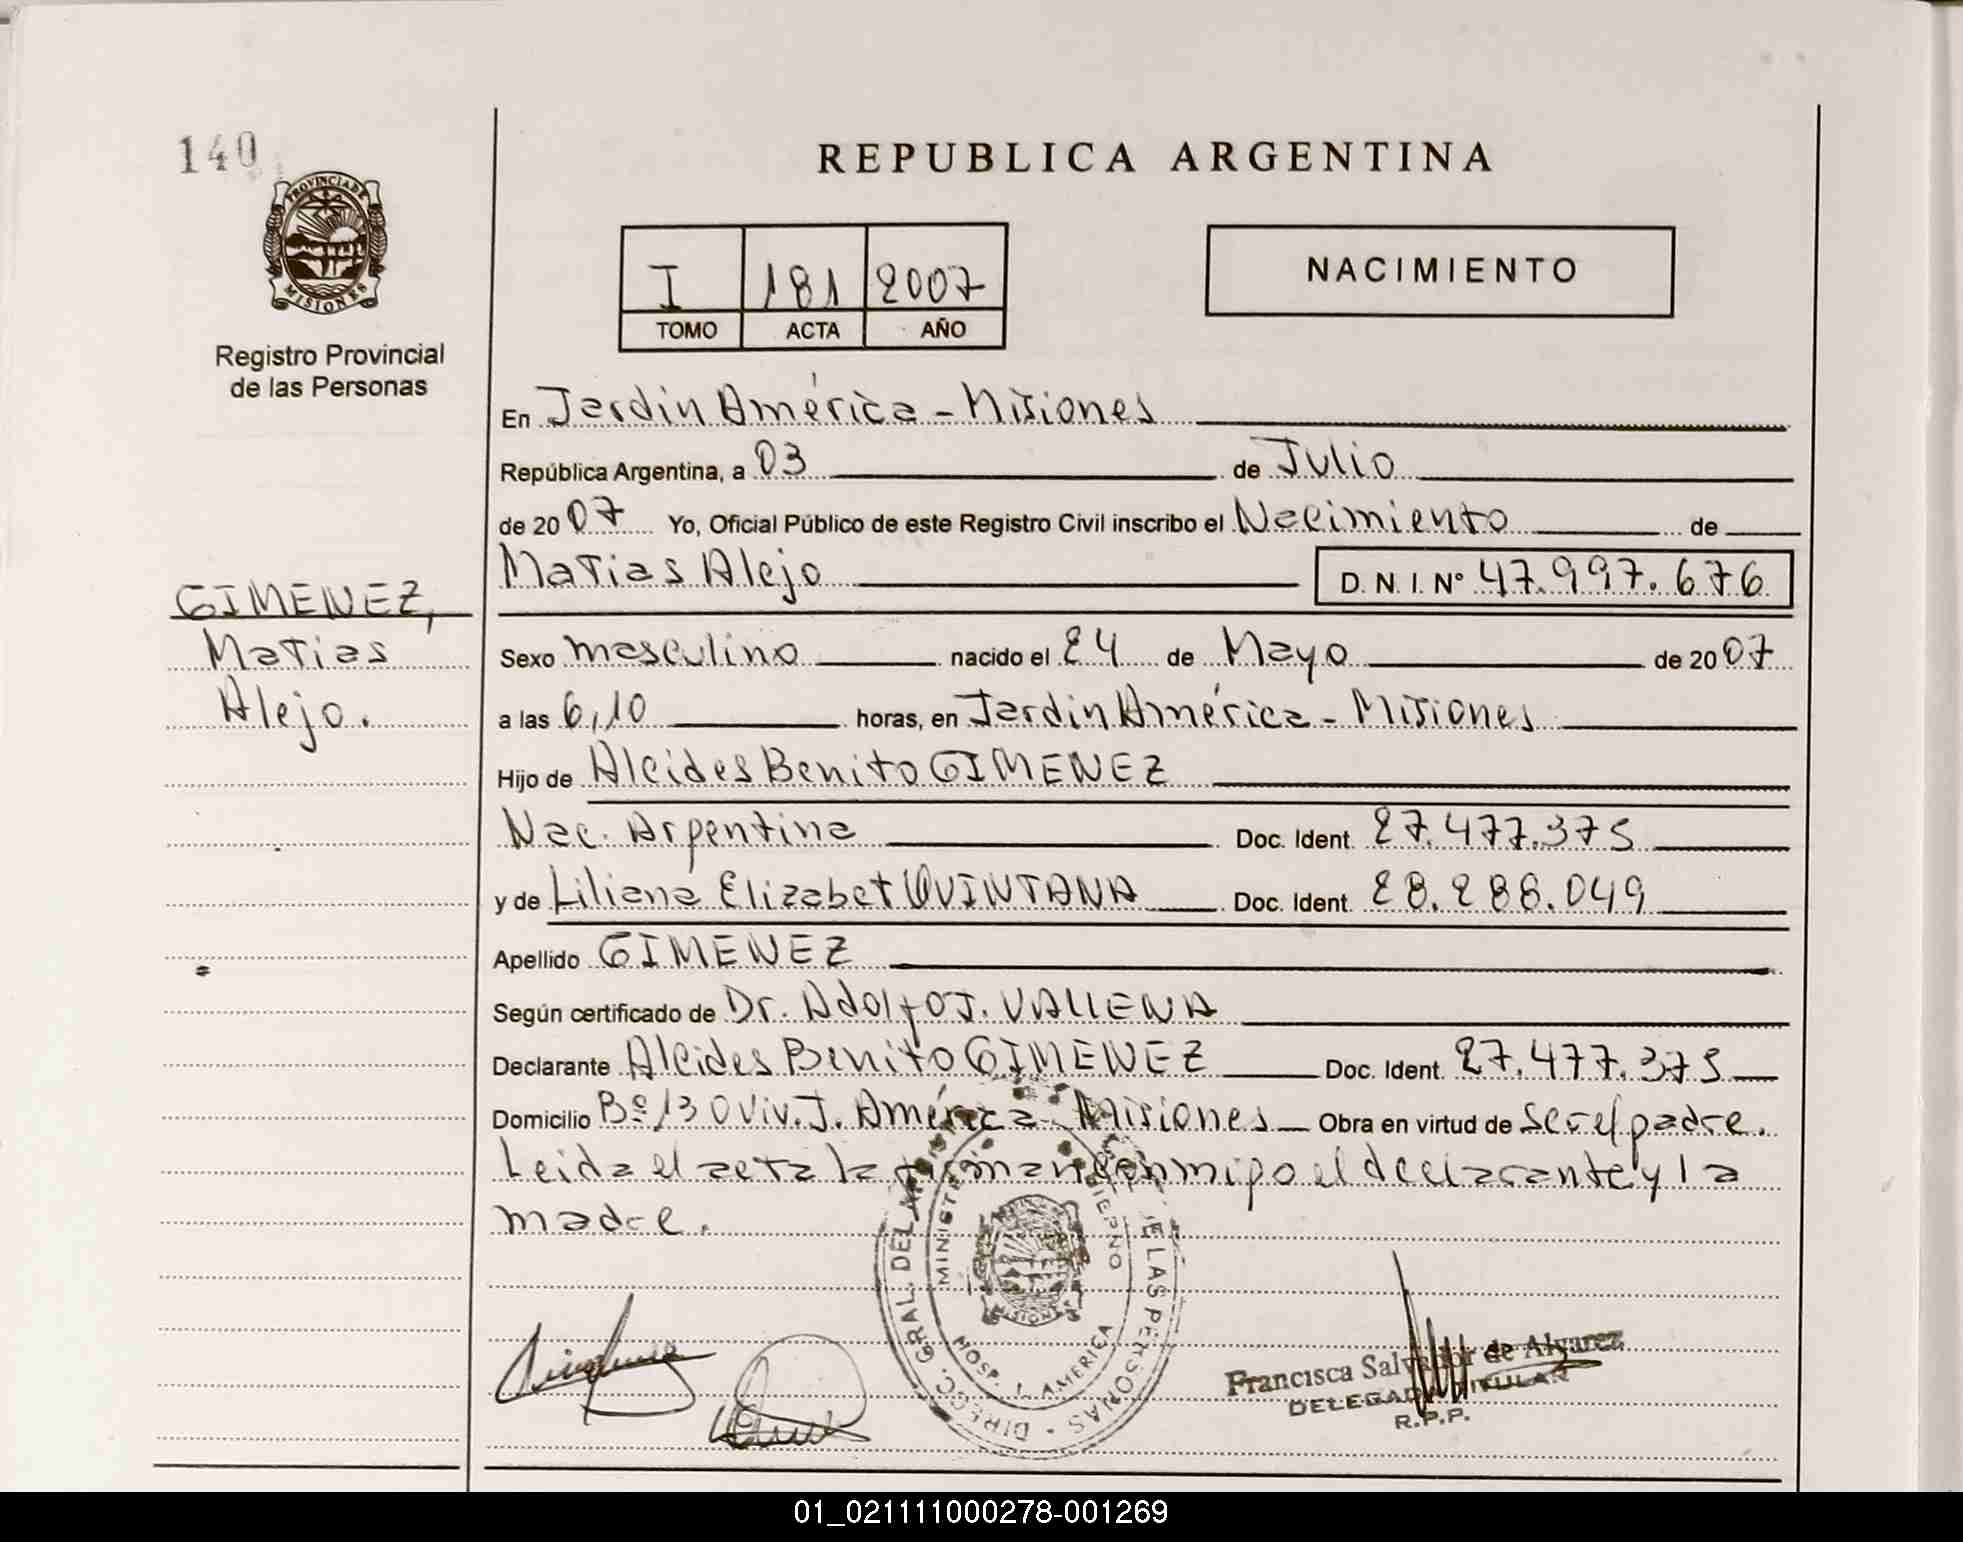 140
PROVINCIA DE
MISIONES
Registro Provincial
de las Personas
REPUBLICA ARGENTINA
I 181 2007
TOMO ACTA AÑO
NACIMIENTO
En Jardín América - Misiones
República Argentina, a 03 de Julio
de 2007 Yo, Oficial Público de este Registro Civil inscribo el Nacimiento de
Matias Alejo D. N. I. Nº 47.997.676
GIMENEZ,
Matias
Alejo.
Sexo masculino nacido el 24 de Mayo de 2007
a las 6,10 horas, en Jardín América - Misiones
Hijo de Alcides Benito GIMENEZ
Nac. Argentina Doc. Ident. 27.477.375
y de Liliana Elizabet QUINTANA Doc. Ident. 28.288.049
Apellido GIMENEZ
Según certificado de Dr. Adolfo J. VALLENA
Declarante Alcides Benito GIMENEZ Doc. Ident. 27.477.375
Domicilio Bº 130 Viv. J. América - Misiones Obra en virtud de ser el padre.
Leida el acta la firman conmigo el declarante y la
madre.
DIRECC. GRAL. DEL DE LAS PERSONAS
MINISTERIO GOBIERNO
HOSP. J. AMERICA
MISIONES
Francisca Salvador de Alvarez
DELEGADA TITULAR
R.P.P.
01_021111000278-001269